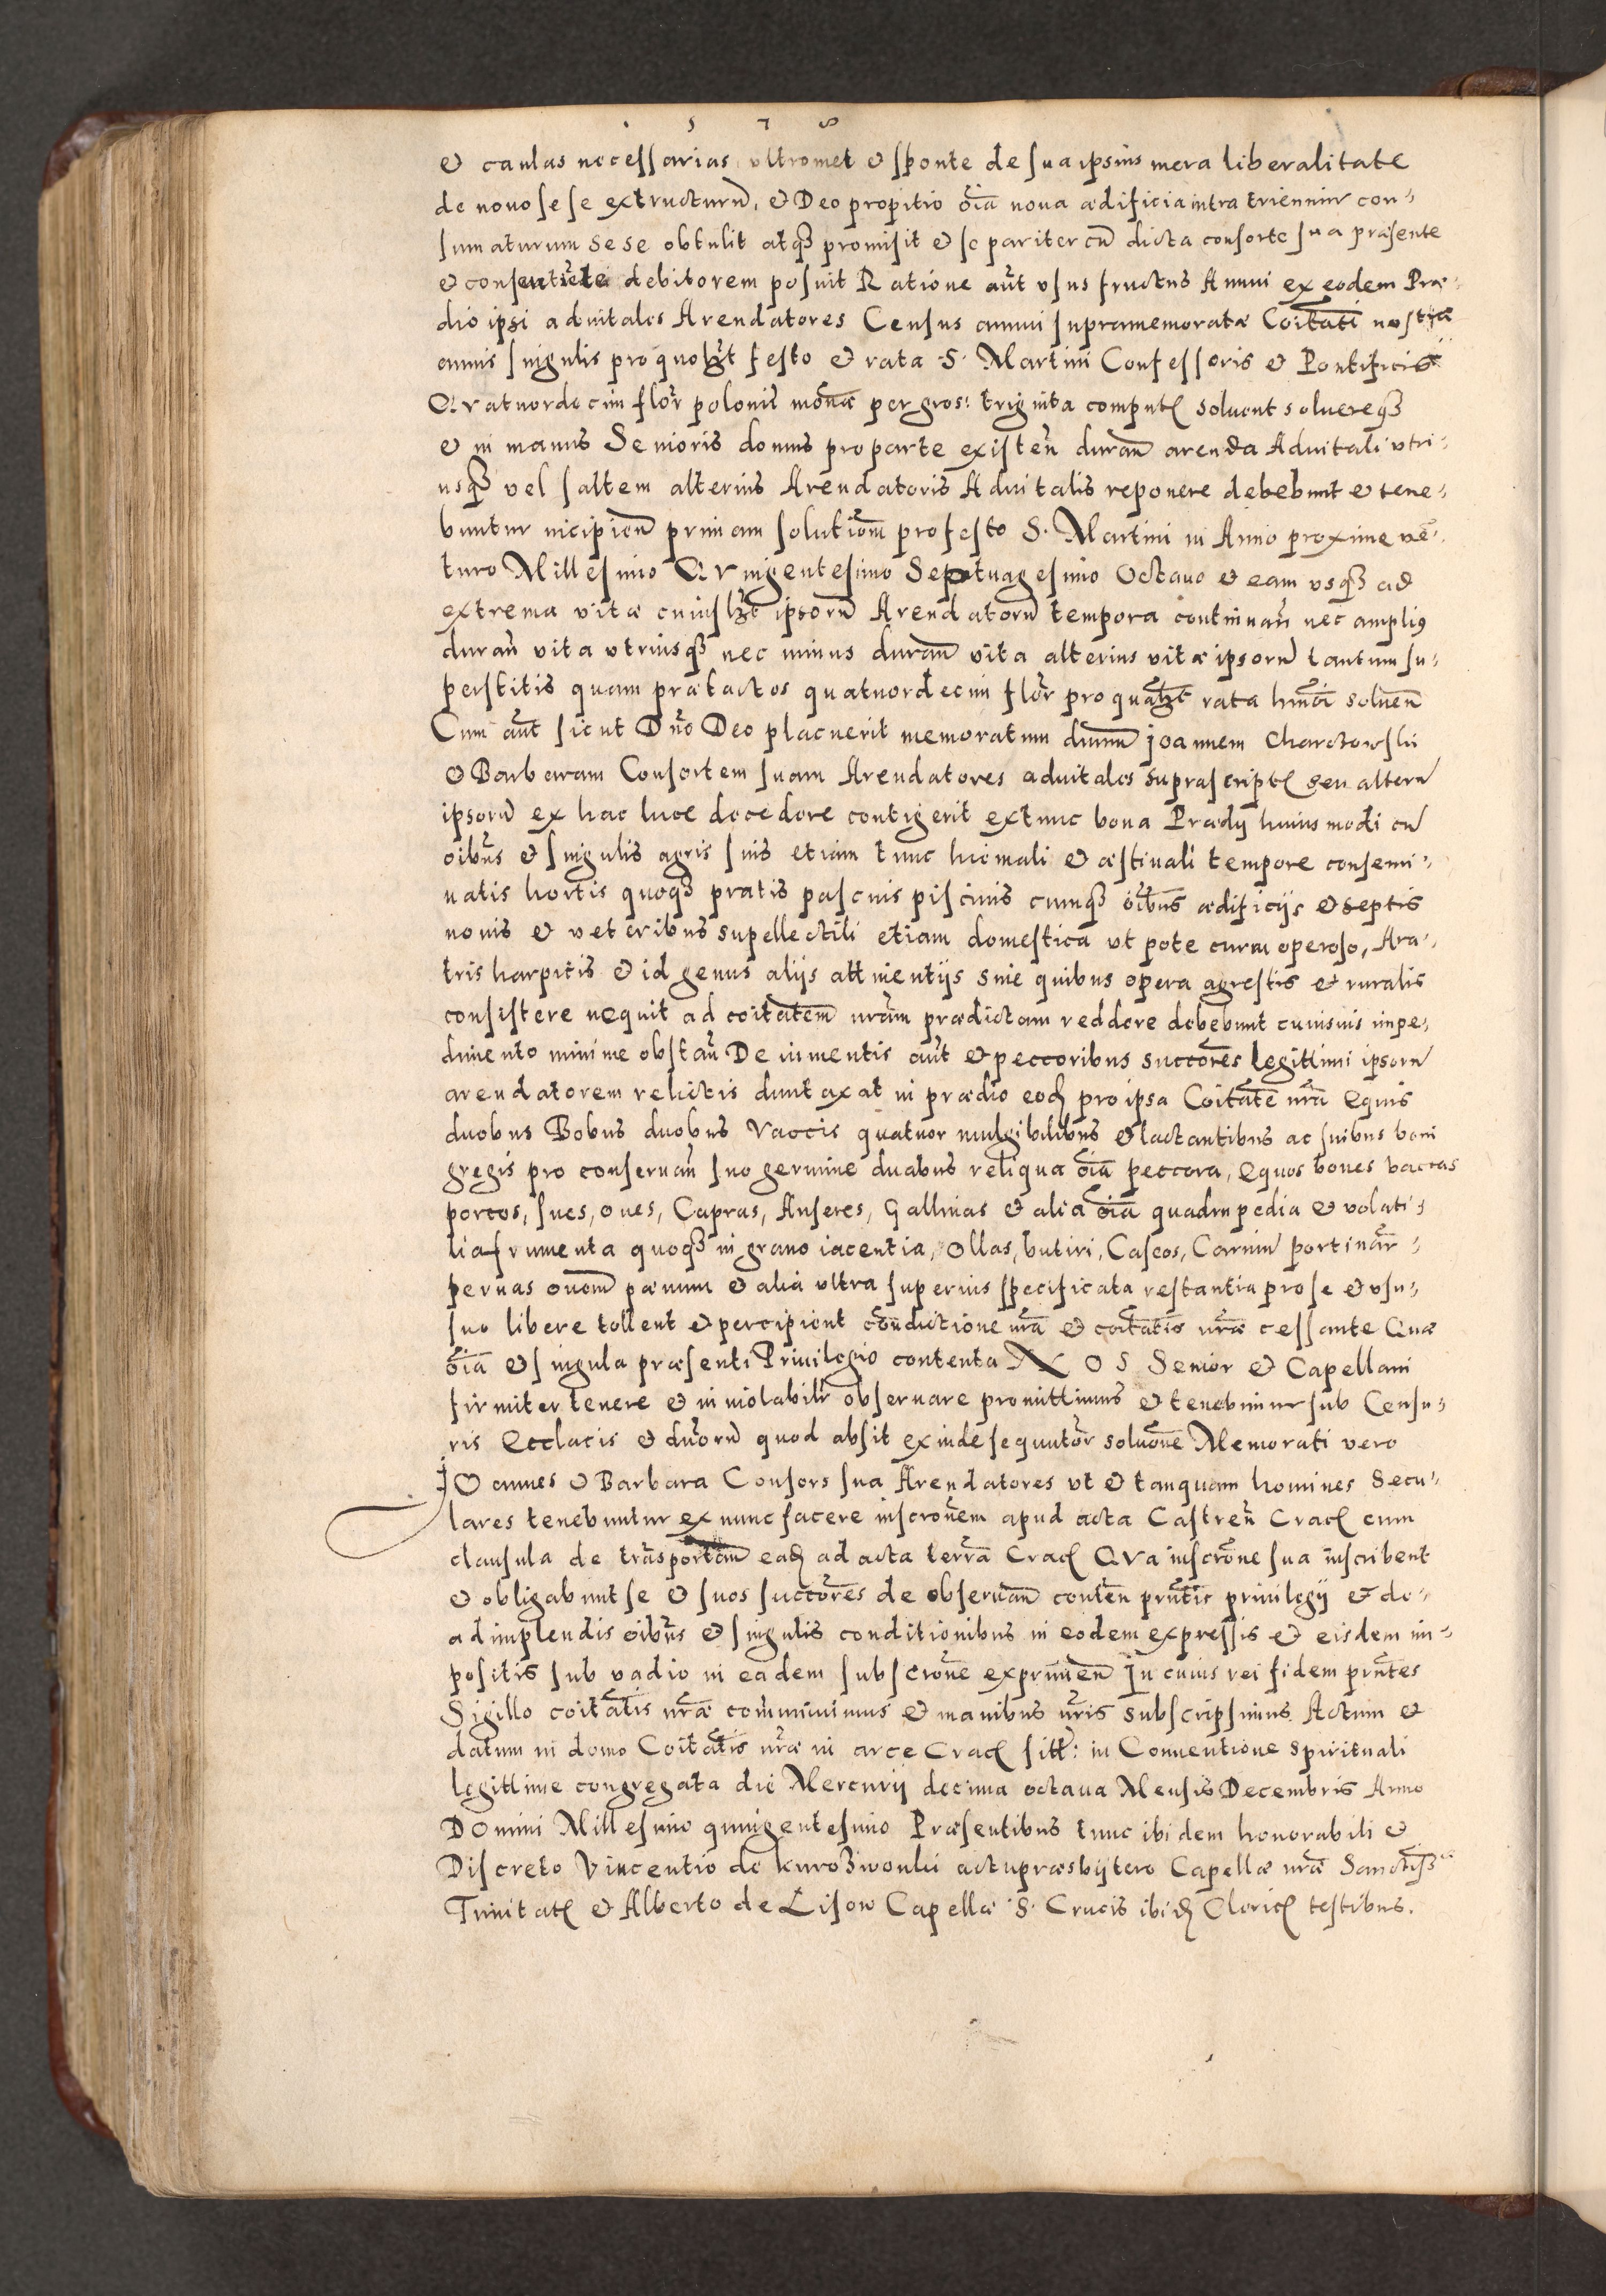 1 5 7 8
et caulas necessarias ultromet et sponte de sua ipsius mera liberalitate
de nouo sese extructurũ, et Deo propitio õia noua ædificia intra trienniũ con„
sumaturum sese obtulit atq₃ promisit et se pariter cũ dicta consorte sua præsente
et consentiẽte debitorem posuit Ratione aũt usus fructus Annui ex eodem Præ„
dio ipsi aduitales Arendatores Census annui supramemoratæ Coĩtati nostræ
annis singulis pro quolꝫt festo et rata S. Martini Confessoris et Pontificis
Quatuordecim flor̃ polonis monæ̃ per gros: triginta computꝭ soluent soluereq₃
et in manus Senioris domus pro parte existeñ durañ arenda Aduitali utri„
usq₃ vel saltem alterius Arendatoris Aduitalis reponere debebunt et tene„
buntur incipieñ primam solutiõm pro festo S. Martini in Anno proxime vẽ„
turo Millesimo Quingentesimo Septuagesimo Octauo et eam usq₃ ad
extrema vitæ cuiuslꝫt ipsorũ Arendatorũ tempora continuañ nec ampliꝰ
durañ vita utriusq₃ nec minus durañ vita alterius vitæ ipsorũ tantum su„
perstitis quam prætactos quatuordecim flor̃ pro qualꝫt rata hmõi soluen̄
Cum aũt sicut Dño Deo placuerit memoratum diuum Joannem Charctowski
et Barbaram Consortem suam Arendatores aduitales suprascriptꝭ seu alterũ
ipsorũ ex hac luce decedere contigerit extunc bona Prædij huiusmodi cũ
oĩbus et singulis agris suis etiam tunc hiemali et æstiuali tempore consemi„
natis hortis quoq₃ pratis pascuis piscinis cumq₃ oĩbus ædificijs et septis
nouis et veteribus supellectili etiam domestica ut pote curru operoso, Ara„
tris harpicis et id genus alijs attinentijs sine quibus opera agrestis et ruralis
consistere nequit ad coitatem nr̃am prædictam reddere debebunt cuiusuis impe„
dimento minime obstañ De iumentis aũt et peccoribus succores legittimi ipsorũ
arendatorem relictis duntaxat in prædio eodꝫ pro ipsa Coitate nr̃a Equis
duobus Bobus duobus Vaccis quatuor mulgibilibus et lactantibus ac suibus boni
gregis pro conseruañ suo germine duabus reliqua oĩa peccora, Equos boues vaccas
porcos, sues, oues, Capras, Anseres, Gallinas et alia oĩa quadrupedia et volati„
lia frumenta quoq₃ in grano iacentia, Ollas, butiri, Caseos, Carniũ portinar̃„
pernas ouem pænum et alia ultra superius specificata restantia pro se et usu„
suo libere tollent et percipient condictione nr̃a et coitatis nræ cessante Quæ
oĩa et singula præsenti Priuilegio contenta NOS Senior et Capellani
firmiter tenere et inuiolabilr̃ obseruare promittimus et tenebimur sub Censu„
ris Ecclacis et duorũ quod absit exinde sequutor̃ soluone Memorati vero
JOannes et Barbara Consors sua Arendatores ut et tanquam homines Secu„
lares tenebuntur ex nunc facere inscronem apud acta Castreñ Cracꝭ cum
clausula de transportañ eadꝫ ad acta terr̃a Cracꝭ Qua inscrone sua inscribent
et obligabunt se et suos succores de obseruañ conteñ prñtis priuilegij et de„
adimplendis oĩbus et singulis conditionibus in eodem expressis et eisdem im„
positis sub vadio in eadem subscrone exprimeñ In cuius rei fidem prñtes
Sigillo coitatis nræ com̃uniuimus et manibus nr̃is subscripsimus. Actum et
datum in domo Coitatis nræ in arce Cracꝭ sitt: in Conuentione spirituali
legittime congregata die Mercurij decima octaua Mensis Decembris Anno
DOmini Millesimo quingentesimo Præsentibus tunc ibidem honorabili et
Discreto Vincentio de kurozwonki actupræsbijtero Capellæ nræ Sanctiss:
Trinitatꝭ et Alberto de Lisow Capellæ S. Crucis ibidꝫ Clericꝭ testibus.